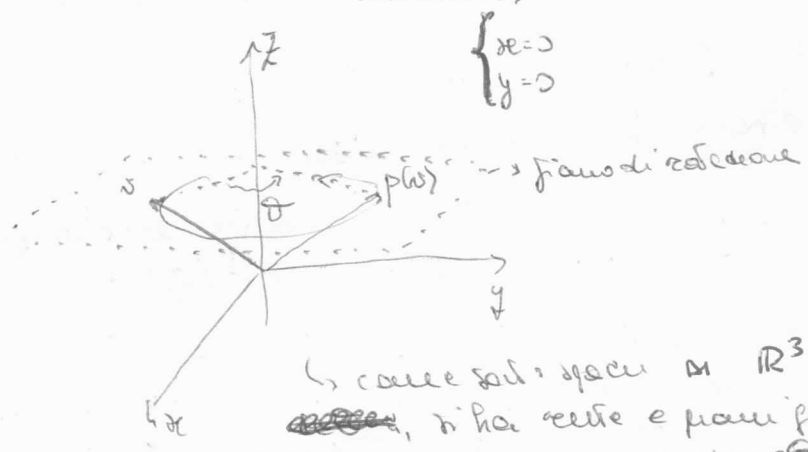 { x=0
y=0
z
v
p(v)
→ piano di rotazione
θ
y
x
↳ come sottospazi di ℝ³
, si ha rette e piani